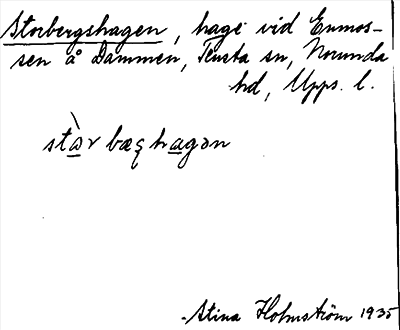 Storbergshagen, hage vid Enmos-
sen å Dammen, Tensta sn, Norunda
hd, Upps. l.
Stina Holmström 1935